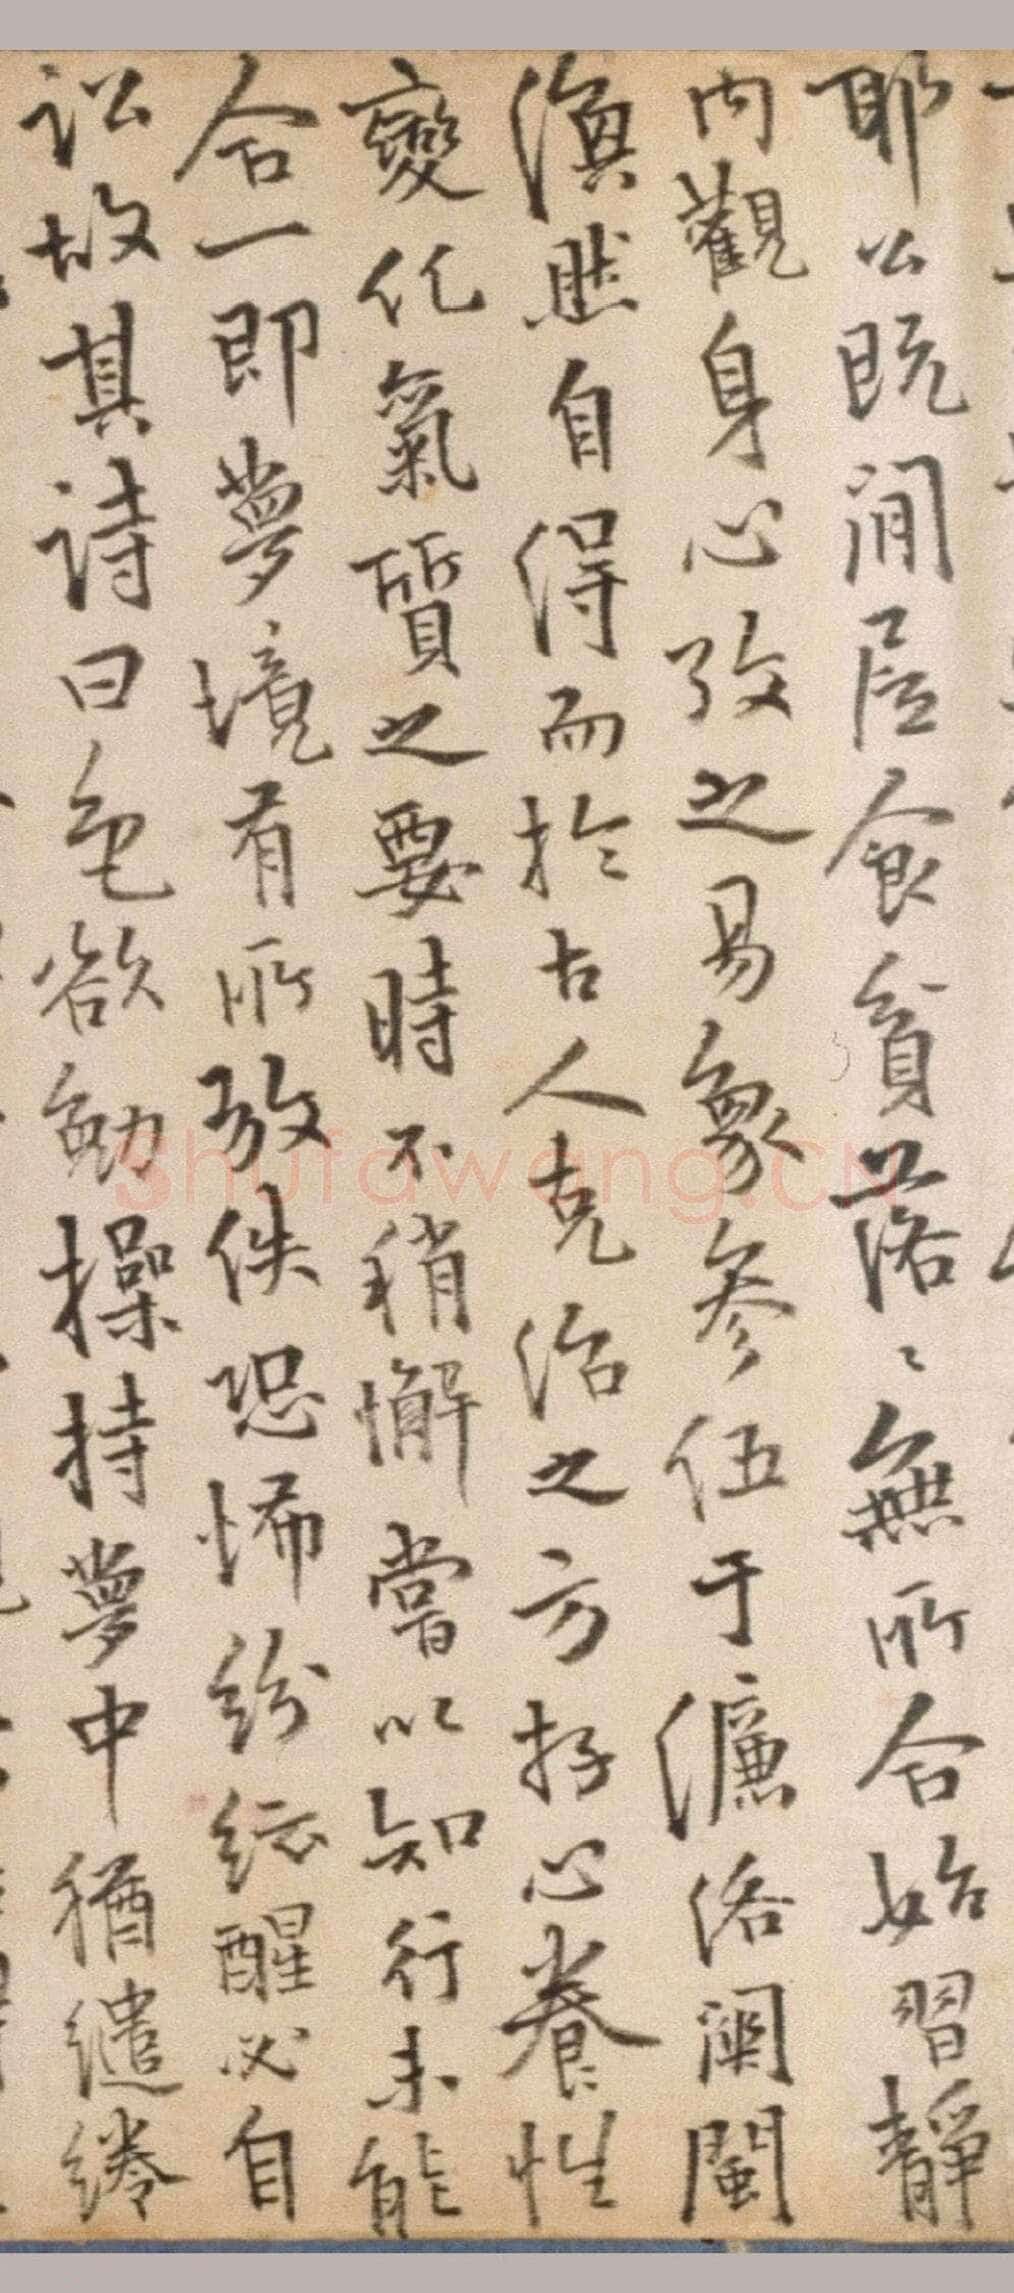 耶公既閒居食貧落〻無所合始習靜
内觀身心攷之易象參伍于濂洛關閩
渙然自得而於古人克治之方存心養性
變化氣質之要時不稍懈嘗以知行未能
合一即夢境有所放佚恐怖紛紜醒必自
訟故其詩曰色欲勉操持夢中猶繾綣
Shufawang.CN